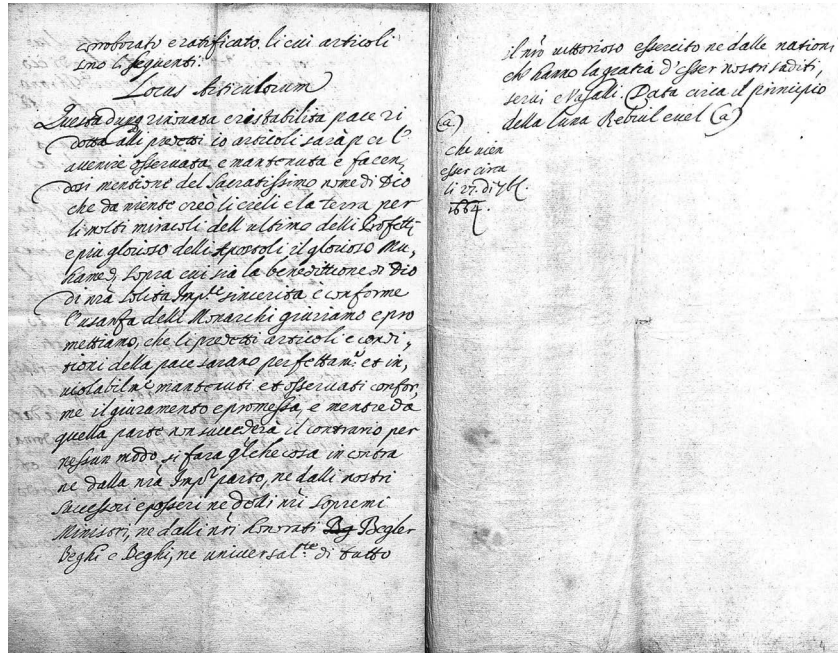 corroborato e ratificato, li cui articoli
sono li seguenti.
Locus Articulorum
Questa dunq rinovata e ristabilita pace ri
dotta alli predetti 10 articoli sarà p o l'
avenire osservata e mantenuta e facen
dosi mentione del Sacratissimo nome di Dio
che da niente creò li cieli e la terra per
li molti miracoli dell ultimo delli Profetti
e piu glorioso delli Apostoli il glorioso Mu,
hamed, sopra cui sia la benedittione di Dio
di nrà solita Imp.le sincerità e conforme
l'usanza delli Monarchi giuriamo e pro
mettiamo, che li predetti articoli e condi,
tioni della pace sarano perfettam.e et in,
violabilm.e mantenuti et osservati confor,
me il giuramento e promessa, e mentre da
quella parte non succederà il contrario per
nessun modo si fara qlche cosa in contra
ne dalla nrà Imp.l parte, ne dalli nostri
successori e posteri ne delli nri Sopremi
Ministri, ne dalli nri honorati Bg Begler
Beghi e Beghi, ne universal.te di tutto
il nrò vittorioso essercito ne dalle nationi
che hanno la gratia d'esser nostri suditi,
servi e Vasalli. Data circa il principio
della luna Rebiul evel (a)
(a)
che vien
esser circa
li 27. di 7b.
1664.